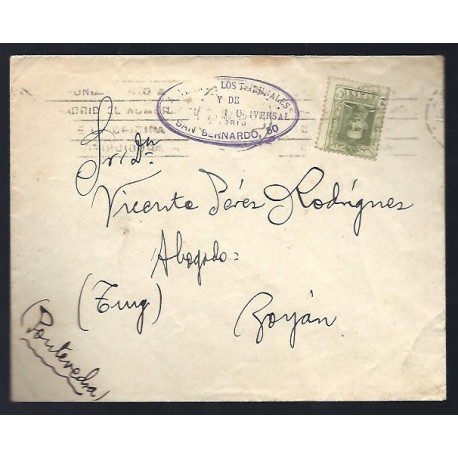 LOS TRIBUNALES
Y DE
UNIVERSAL
SAN BERNARDO, 50
MADRID EL
Sr. Dn
Vicente Pérez Rodríguez
Abogado =
(Tuy) Goyán
(Pontevedra)